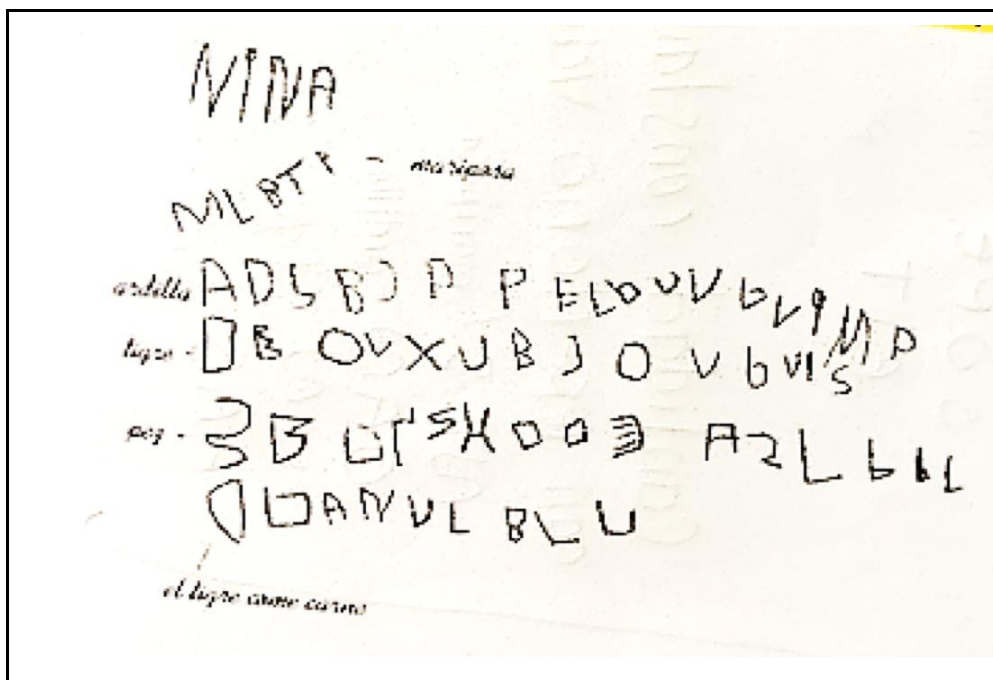 NINA
MLBTP - mariposa
ardilla ADSBJPPELDUVbVqMP
tigre - DBOVXUBJOVbVIS
pez - BOPSHDO AZLbLL
DANVLBLU
el tigre come carne